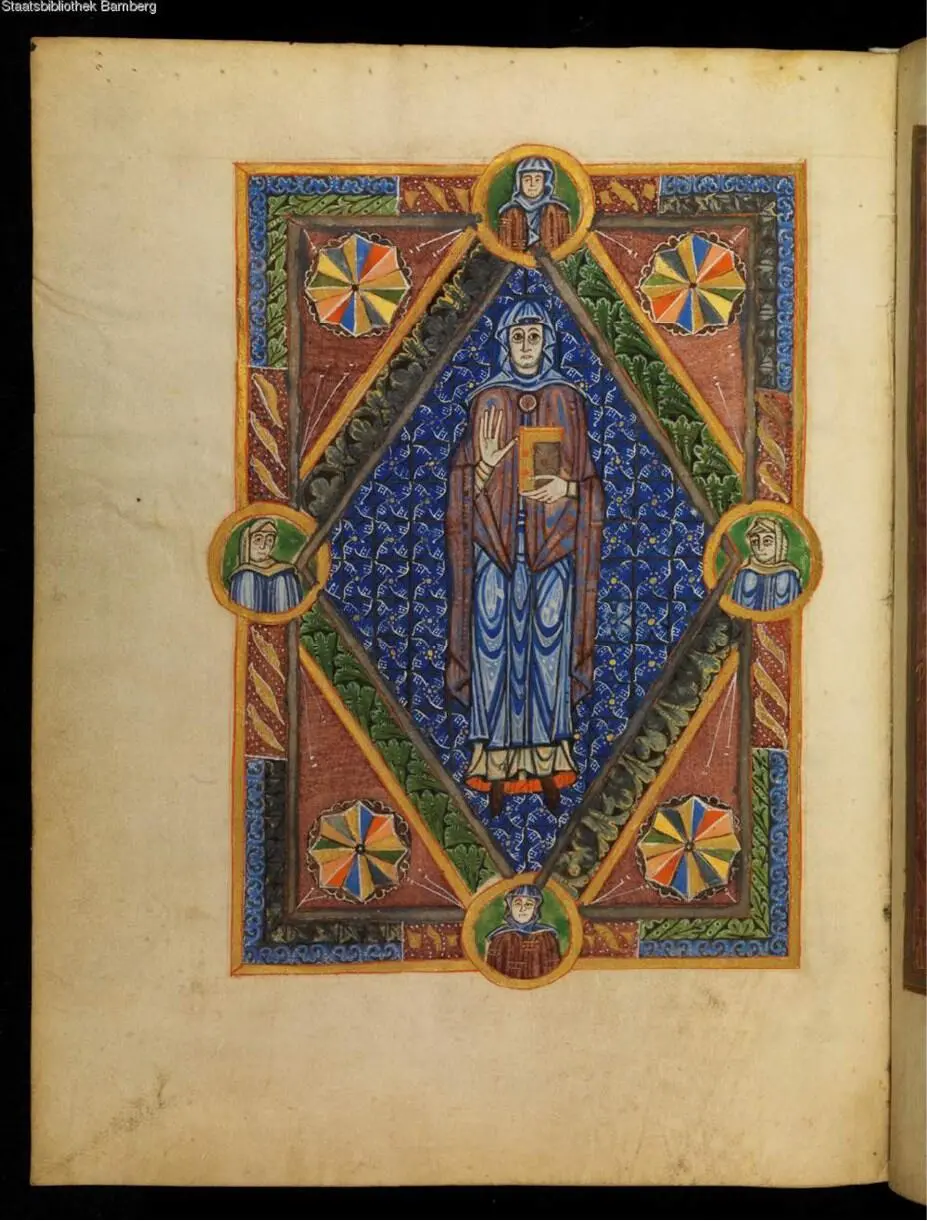 Staatsbibliothek Bamberg